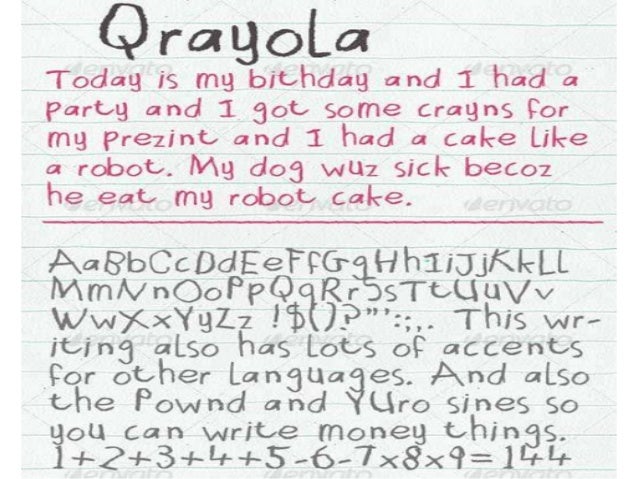 Qrayola
Today is my bithday and I had a
party and I got some crayns for
my prezint and I had a cake like
a robot. My dog wuz sick becoz
he eat my robot cake.
AaBbCcDdEeFfGgHhIiJjKkLl
MmNnOoPpQqRrSsTtUuVv
WwXxYyZz !$()?"':;,. This wr-
iting also has lots of accents
for other languages. And also
the Pownd and YUro sines so
you can write money things.
1+2+3+4+5-6-7x8x9=144